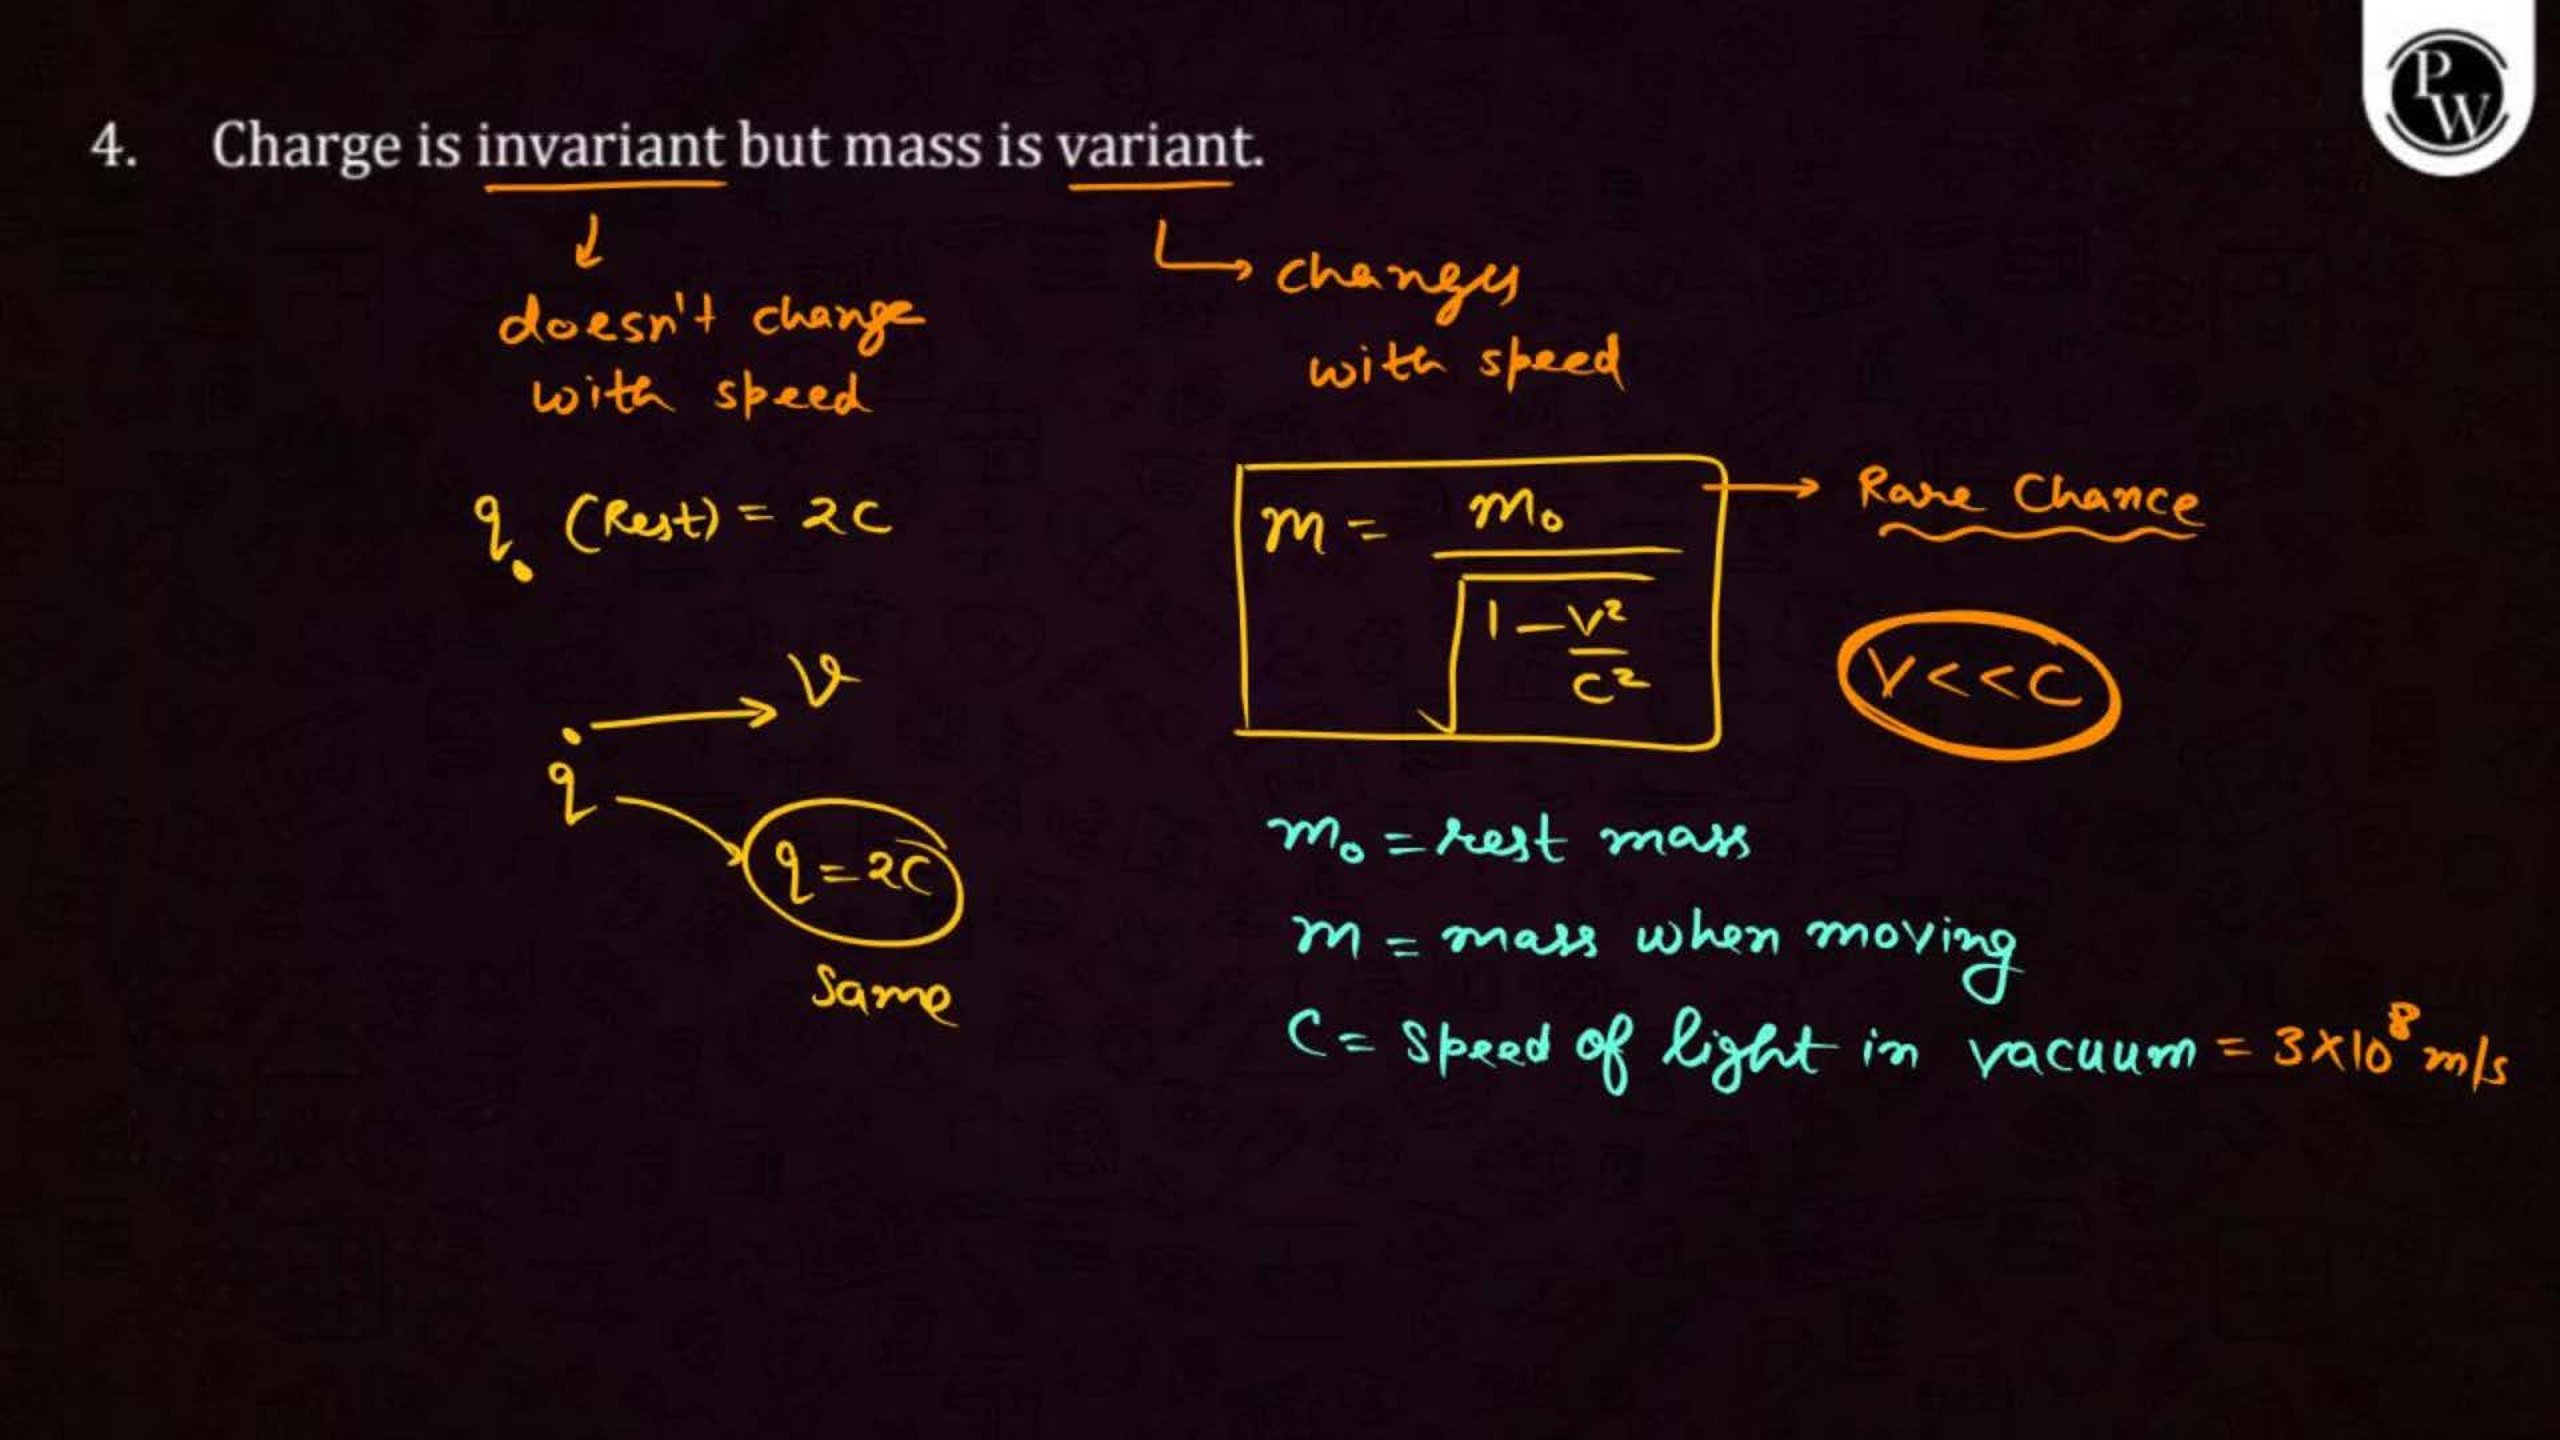 PW
4. Charge is invariant but mass is variant.
doesn't change
with speed
changes
with speed
q (Rest) = 2C
m = m₀ / √(1 - v²/c²)
Rare Chance
V<<C
v
q
q = 2C
Same
m₀ = rest mass
m = mass when moving
C = speed of light in vacuum = 3×10⁸ m/s